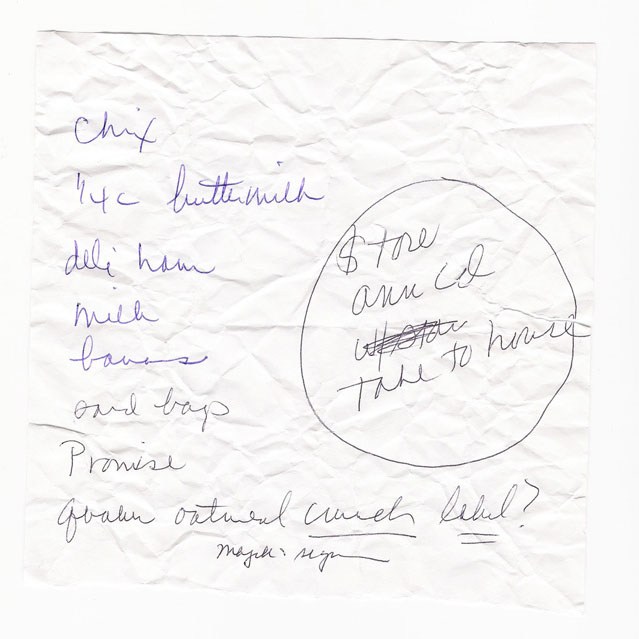 Chix
1/4 c buttermilk
deli ham
milk
banans
sand bags
Promise
Quaker oatmeal crunch label?
Store
ann cd
take to house